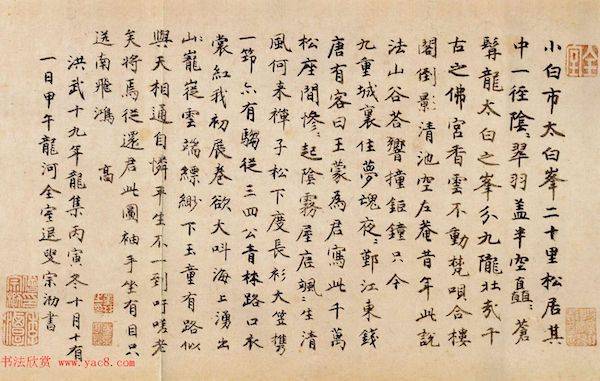 小白市太白峯二十里松居其
中一徑陰々翠羽蓋半空矗々蒼
髯龍太白之峯分九隴壯哉千
古之佛宮香雲不動梵唄合樓
閣倒影清池空左菴昔年此說
法山谷荅響撞鉅鐘只今
九重城裏住夢魂夜々鄞江東錢
唐有客曰王蒙為君寫此千萬
松座間慘々起陰霧屋底颯々生清
風何来禪子松下度長衫大笠携
一筇亦有騶從三四公青林路口衣
裳紅我初展卷欲大叫海上湧出
山巃嵸雲端縹緲下玉童有路似
與天相通自憐平生不一到吁嗟老
矣將焉從還君此圖袖手坐有目只
送南飛鴻 高
洪武十九年龍集丙寅冬十月十有
一日甲午龍河全室退叟宗泐書
书法欣赏 www.yac8.com